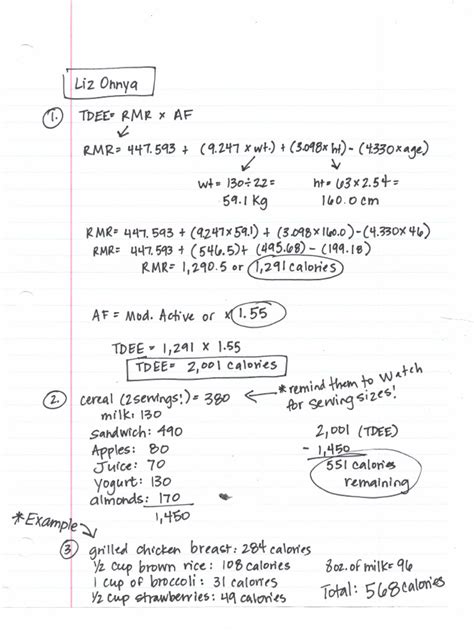 Liz Ohnya
1. TDEE= RMR x AF
RMR= 447.593 + (9.247 x wt.) + (3.098x ht) - (4.330xage)
wt = 130÷2.2= ht= 63x2.54=
59.1 Kg 160.0 cm
RMR= 447.593 + (9.247x59.1) + (3.098x160.0)-(4.330x46)
RMR= 447.593 + (546.5)+ (495.68) - (199.18)
RMR= 1,290.5 or 1,291 calories
AF = Mod. Active or x 1.55
TDEE = 1,291 x 1.55
TDEE= 2,001 calories
2. cereal (2servings!) = 380 *remind them to watch for serving sizes!
milk: 130
Sandwich: 490 2,001 (TDEE)
Apples: 80 - 1,450
Juice: 70 551 calories
Yogurt: 130 remaining
almonds: 170
1,450
*Example
3 grilled chicken breast: 284 calories
1/2 cup brown rice: 108 calories 8oz. of milk= 96
1 cup of broccoli: 31 calories Total: 568 calories
1/2 cup strawberries: 49 calories